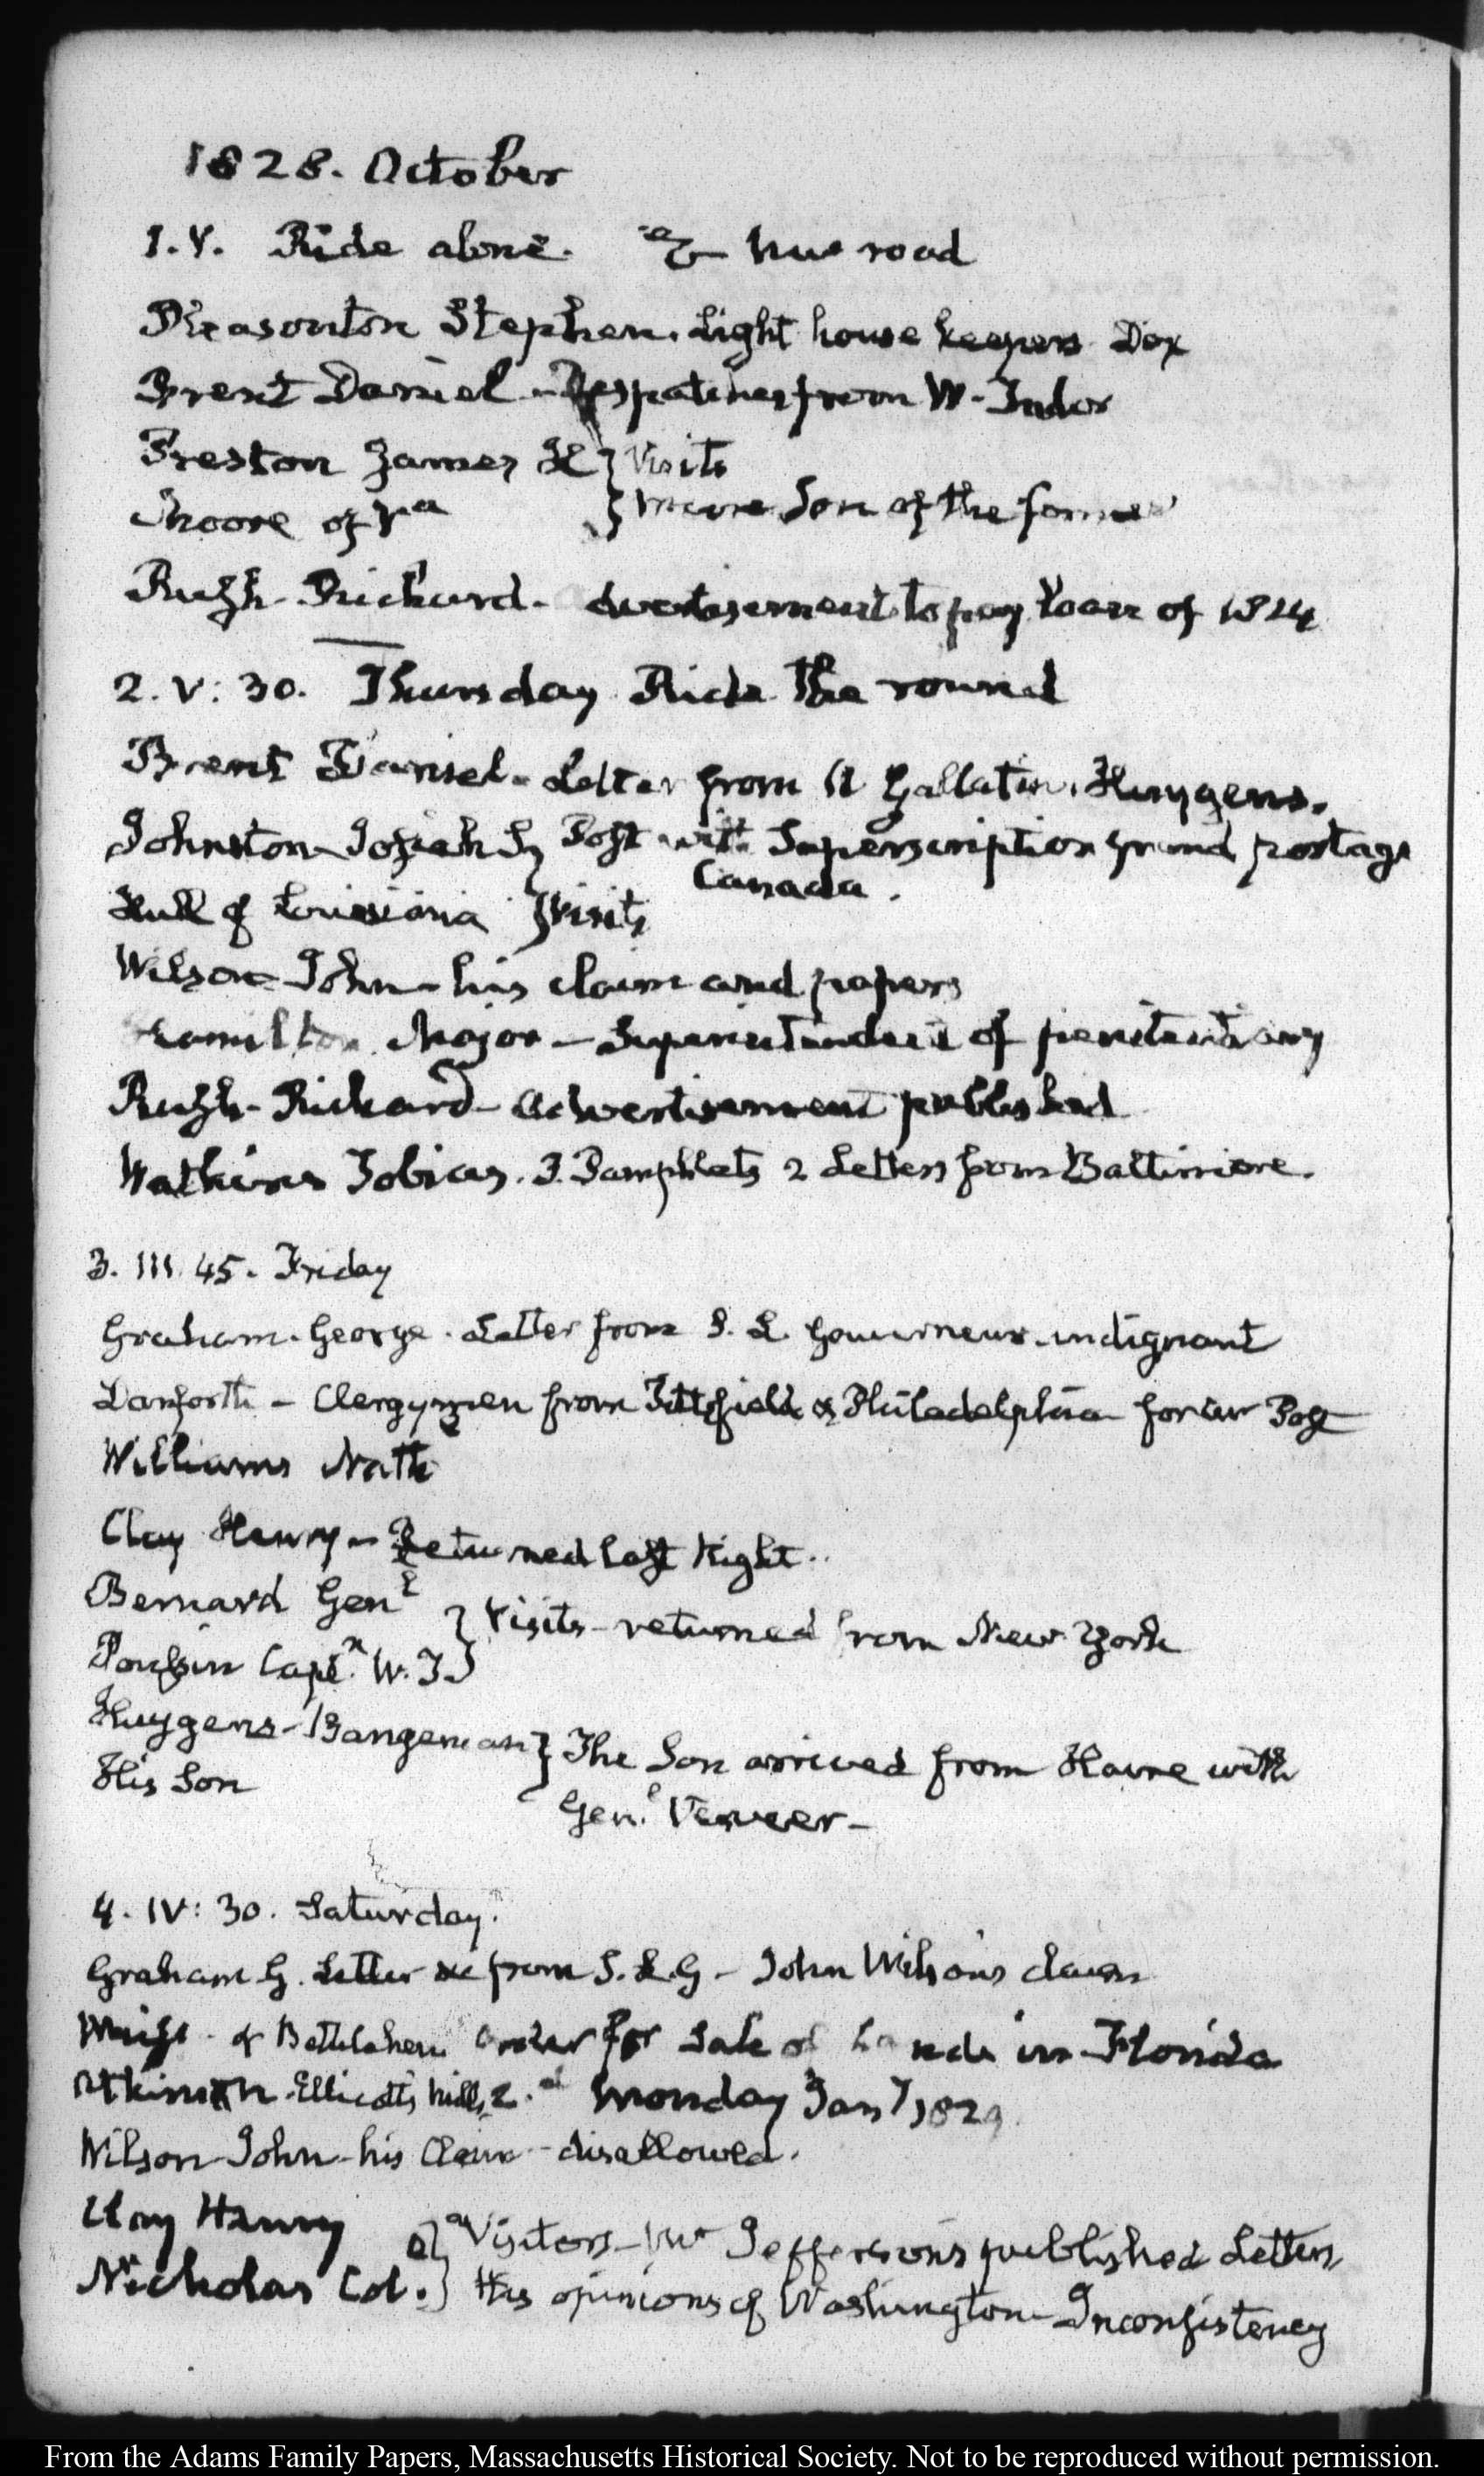 1828. October
1. V. Ride alone. new road
Pleasonton Stephen. Light house keepers Dox
Brent Daniel - Despatches from W. Tudor
Preston James } Visits
Moore of Va } Son of the former
Rush - Richard - advertisement to pay Loan of 1814
2. V: 30. Thursday Ride the round
Brent Daniel - Letter from A Gallatin. Huygens.
Johnston - Josiah S } Post with Superscription postage
Canada.
Hull of Louisiana } Visits
Wilson - John - his claim and papers
Hamilton Major - Superintendent of penitentiary
Rush - Richard - advertisement published
Watkins Tobias. 3. Pamphlets 2 Letters from Baltimore.
3. III. 45. Friday
Graham. George. Letter from S. L. Gouverneur indignant
Danforth - Clergymen from Pittsfield & Philadelphia
Williams Nathl
Clay Henry - Returned last Night.
Bernard Genl } Visits - returned from New York
Poussin Captn. W. T. }
Huygens - Bangeman } The Son arrived from Havre with
His Son
Genl. Verveer -
4. IV: 30. Saturday.
Graham G. Letter from S. L. G - John Wilson's claim
of Bethlehem Order for Sale of Lands in Florida
Atkinson Ellicott's mills 2.d Monday Jany 1829
Wilson - John - his Claim - disallowed.
Clay Henry } Visitors - Mr Jefferson's published Letters
Nicholas Col. } His opinions of Washington - Inconsistency
From the Adams Family Papers, Massachusetts Historical Society. Not to be reproduced without permission.